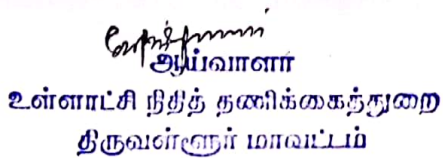 ஆய்வாளர்
உள்ளாட்சி நிதித் தணிக்கைத்துறை
திருவள்ளூர் மாவட்டம்